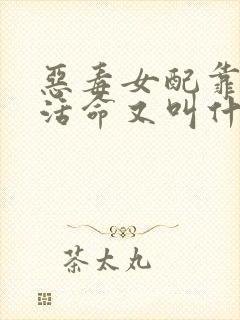 惡毒女配靠
活命又叫什
茶太丸